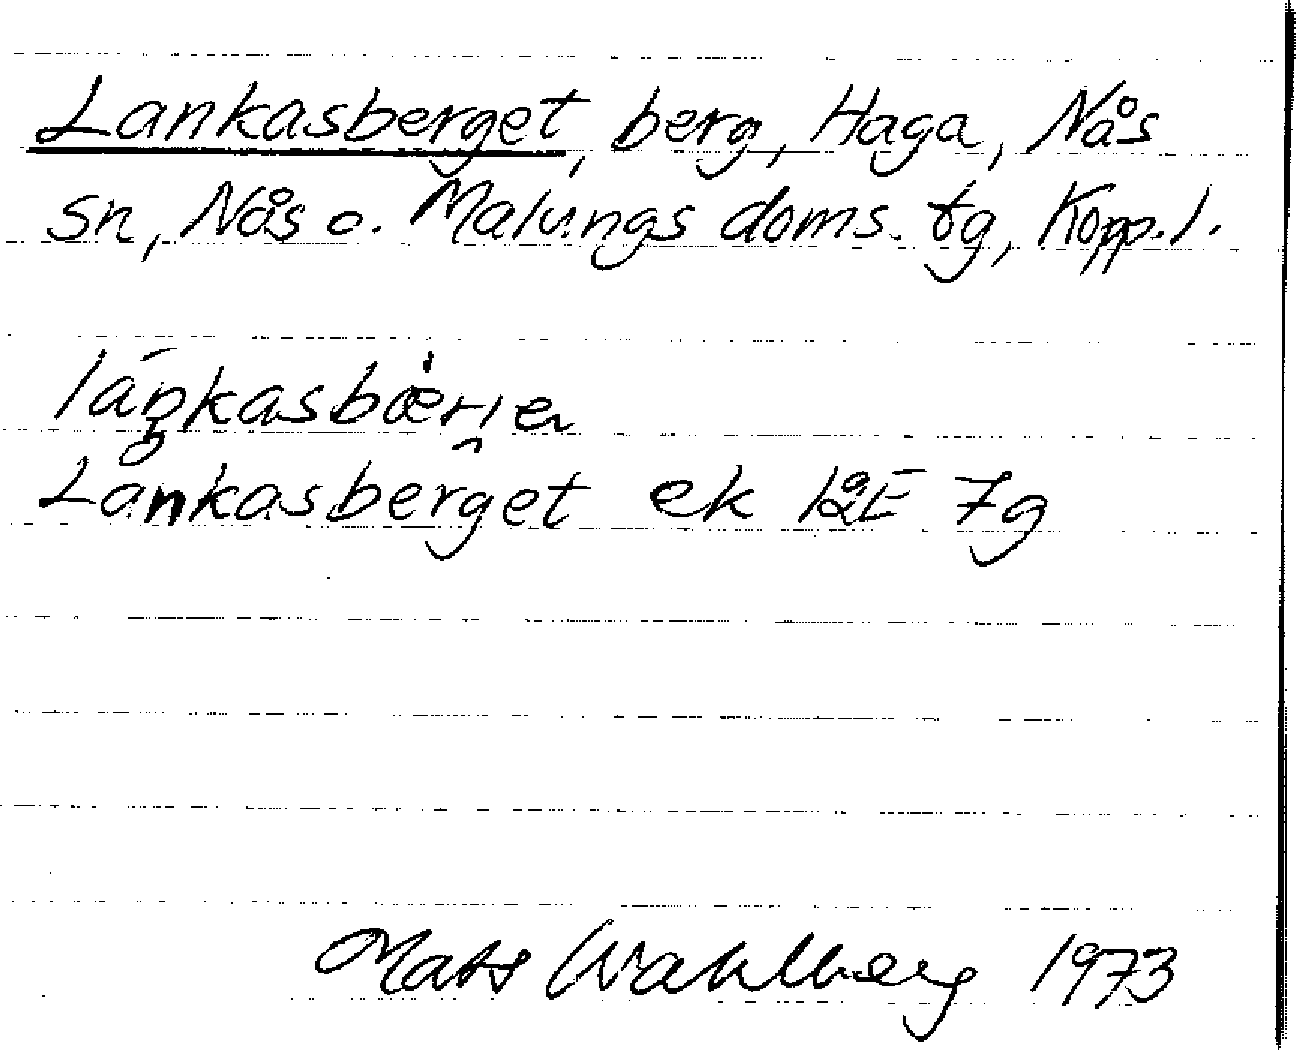 Lankasberget, berg, Haga, Nås
sn, Nås o. Malungs doms. tg, Kopp. l.
Lankasberget ek 12E 7g
Mats Wahlberg 1973